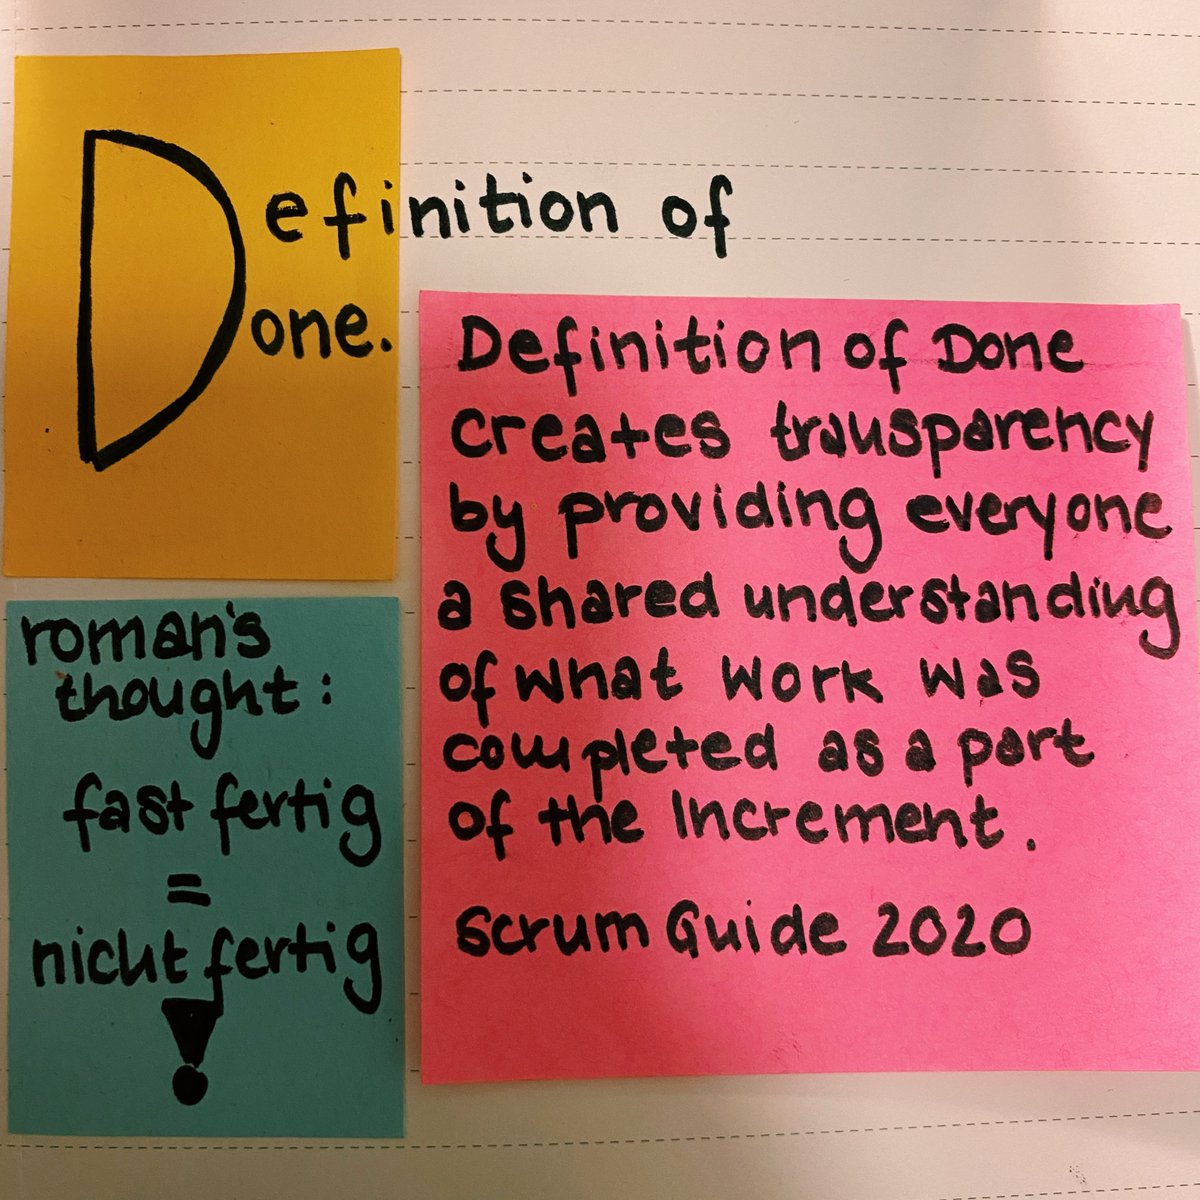 Definition of
Done.
Definition of Done
creates transparency
by providing everyone
a shared understanding
of what work was
completed as a part
of the Increment.
Scrum Guide 2020
roman's
thought:
fast fertig
=
nicht fertig
!